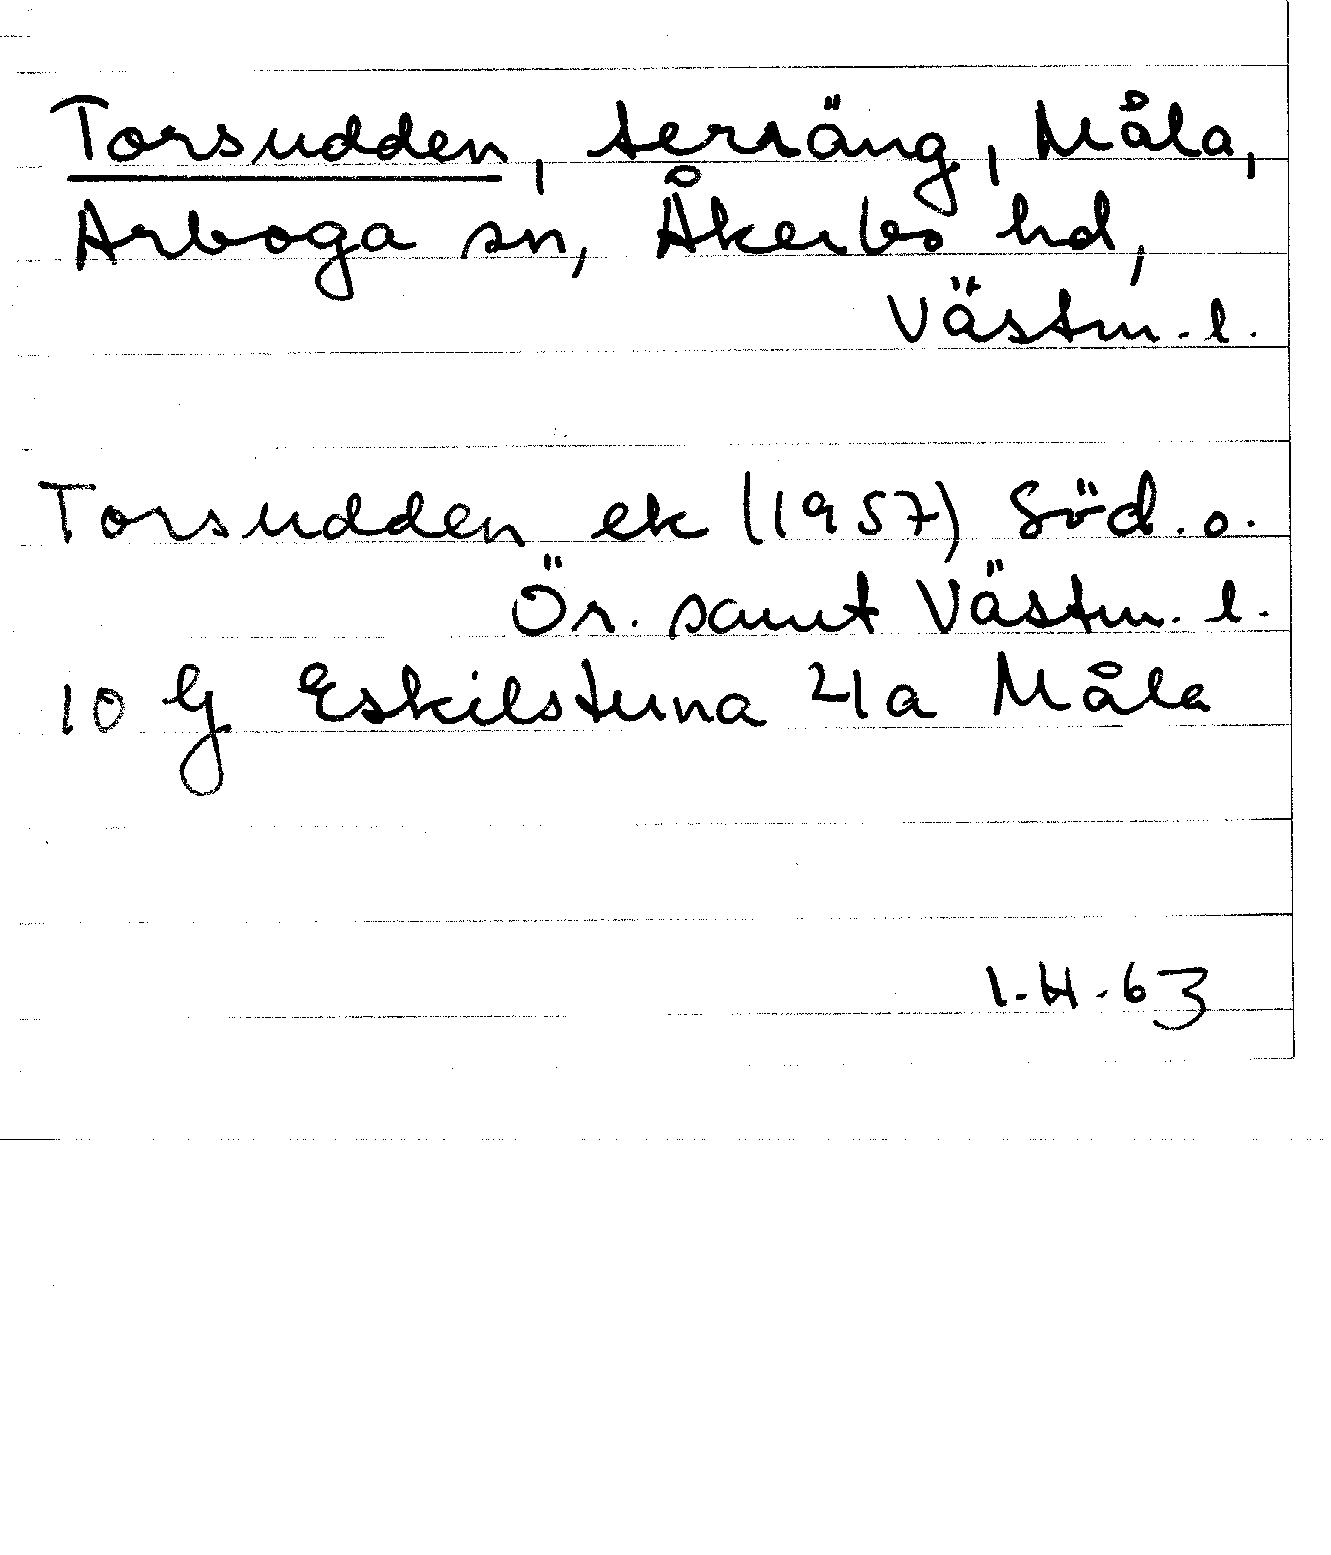 Torsudden, terräng, Måla,
Arboga sn, Åkerbo hd,
Västm. l.
Torsudden ek (1957) Söd. o.
Ör. samt Västm. l.
10 G Eskilstuna 4a Måla
I.H. 63